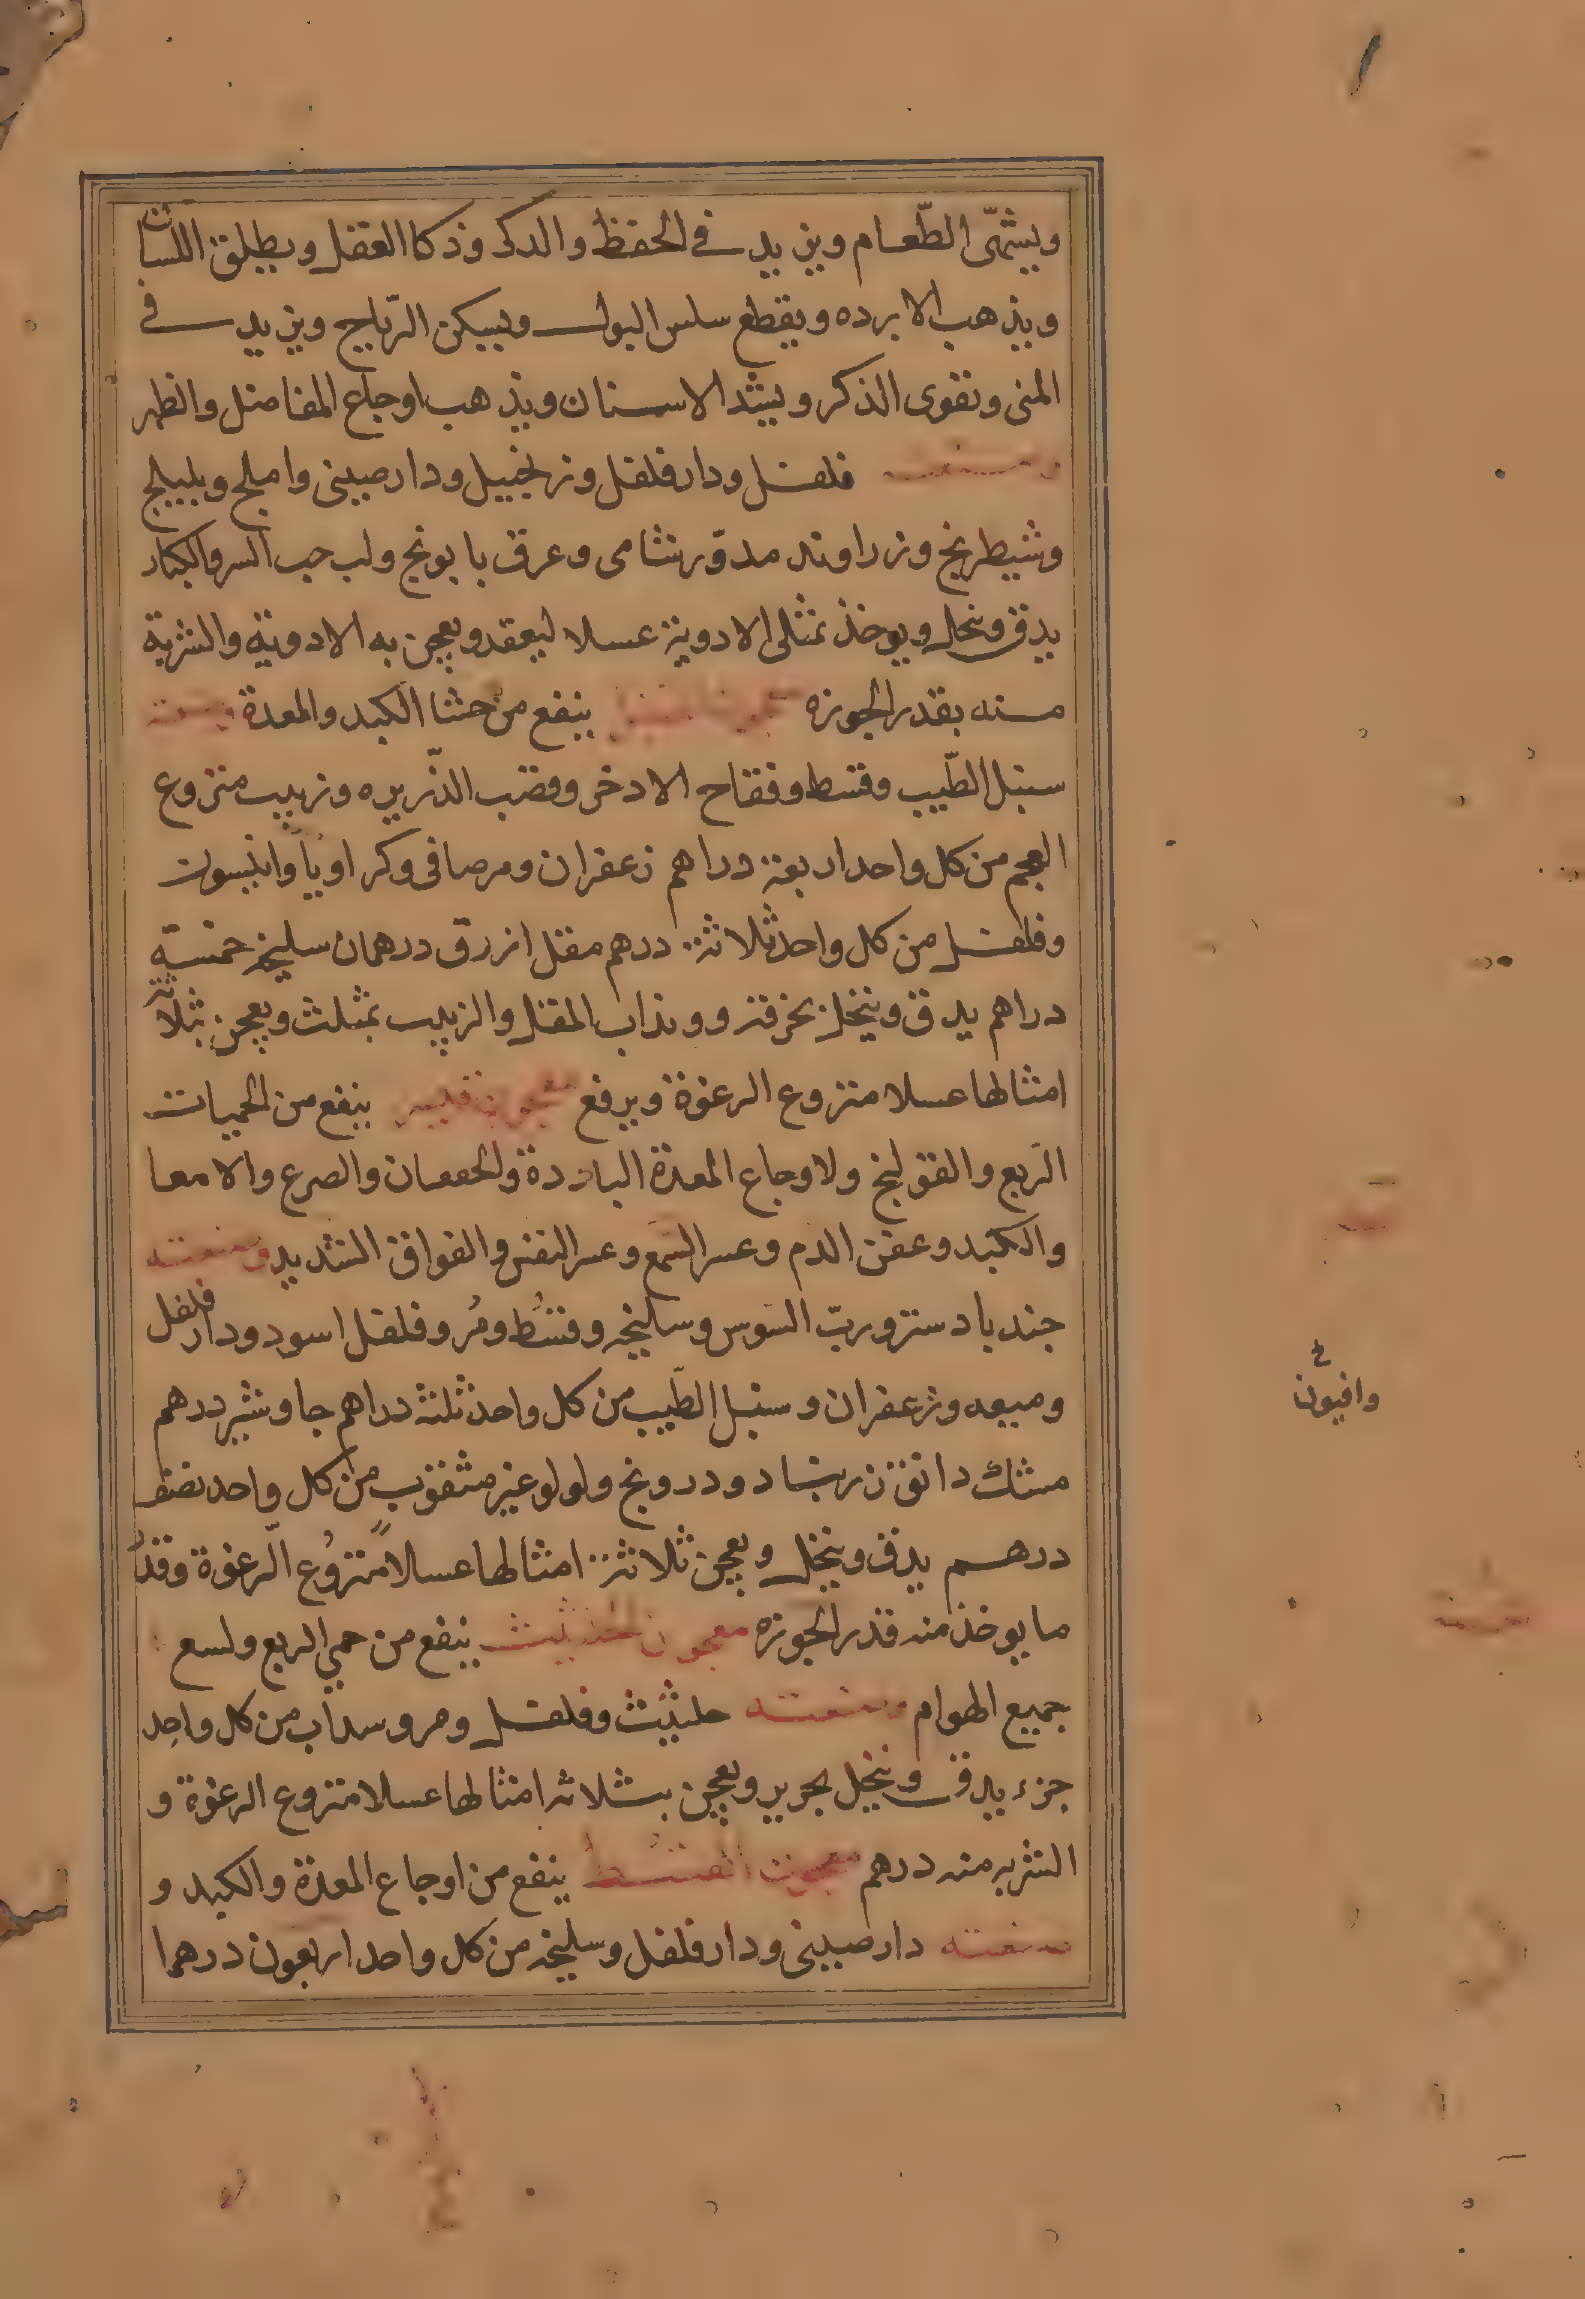 ويشهّى الطّعام ويزيد في الحفظ والدكر وذكا العقل ويطلق اللسان
ويذهب الابرده ويقطع سلس البول ويسكن الرّياح ويزيد في
المنى وتقوى الذكر ويشد الاسنان ويذهب اوجاع المفاصل والظهر
وصنعته فلفل ودار فلفل وزنجبيل ودارصينى واملج وبليلج
وشيطرنج وزراوند مدوّر شامى وعرق بابونج ولب حب السرو الكبار
يدق وينخل ويوخذ بمثلى الادوية عسلا ليعقد ويعجن به الادوية والشربة
منه بقدر الجوزه معجون السنبل ينفع من حشا الكبد والمعدة وصنعته
سنبل الطّيب وقسط وفقاح الادخر وقصب الذّريره وزبيب منزوع
العجم من كل واحد اربعة دراهم زعفران ومر صافى وكراويا وانيسون
وفلفل من كل واحد ثلاثة درهم مقل ازرق درهمان سليخه خمسة
دراهم يدق وينخل بخرقة ويذاب المقل والزبيب بمثلث ويعجن بثلاثة
امثالها عسلا منزوع الرغوة ويرفع معجون ينفع من الحميات
الربع والقولنج ولاوجاع المعدة الباردة والخفقان والصرع والامعا
والكبد وعفن الدم وعسر السّمع وعسر النفس والفواق الشديد وصنعته
جندبادستر وربّ السّوس وسليخه وقسُط ومُر وفلفل اسود ودار فلفل
وميعه وزعفران وسنبل الطّيب من كل واحد ثلثة دراهم جاوشير درهم
مسك دانق زرنباد ودرونج ولولو غير مثقوب من كل واحد نصف
درهم يدق وينخل ويعجن ثلاثة امثالها عسلاً منزوُع الّرغوة وقدُر
ما يوخذ منه قدر الجوزه معجون الحلتيث ينفع من حمي الربع ولسع
جميع الهوام وصنعته حلتيث وفلفل ومر وسداب من كل واحِد
جزء يدق وينخل بحرير ويعجن بثلاثه امثالها عسلا منزوع الرغوة و
الشربه منه درهم معجون القسُط ينفع من اوجاع المعدة والكبد و
صنعته دارصينى ودار فلفل وسليخه من كل واحد اربعون درهما
وافيون